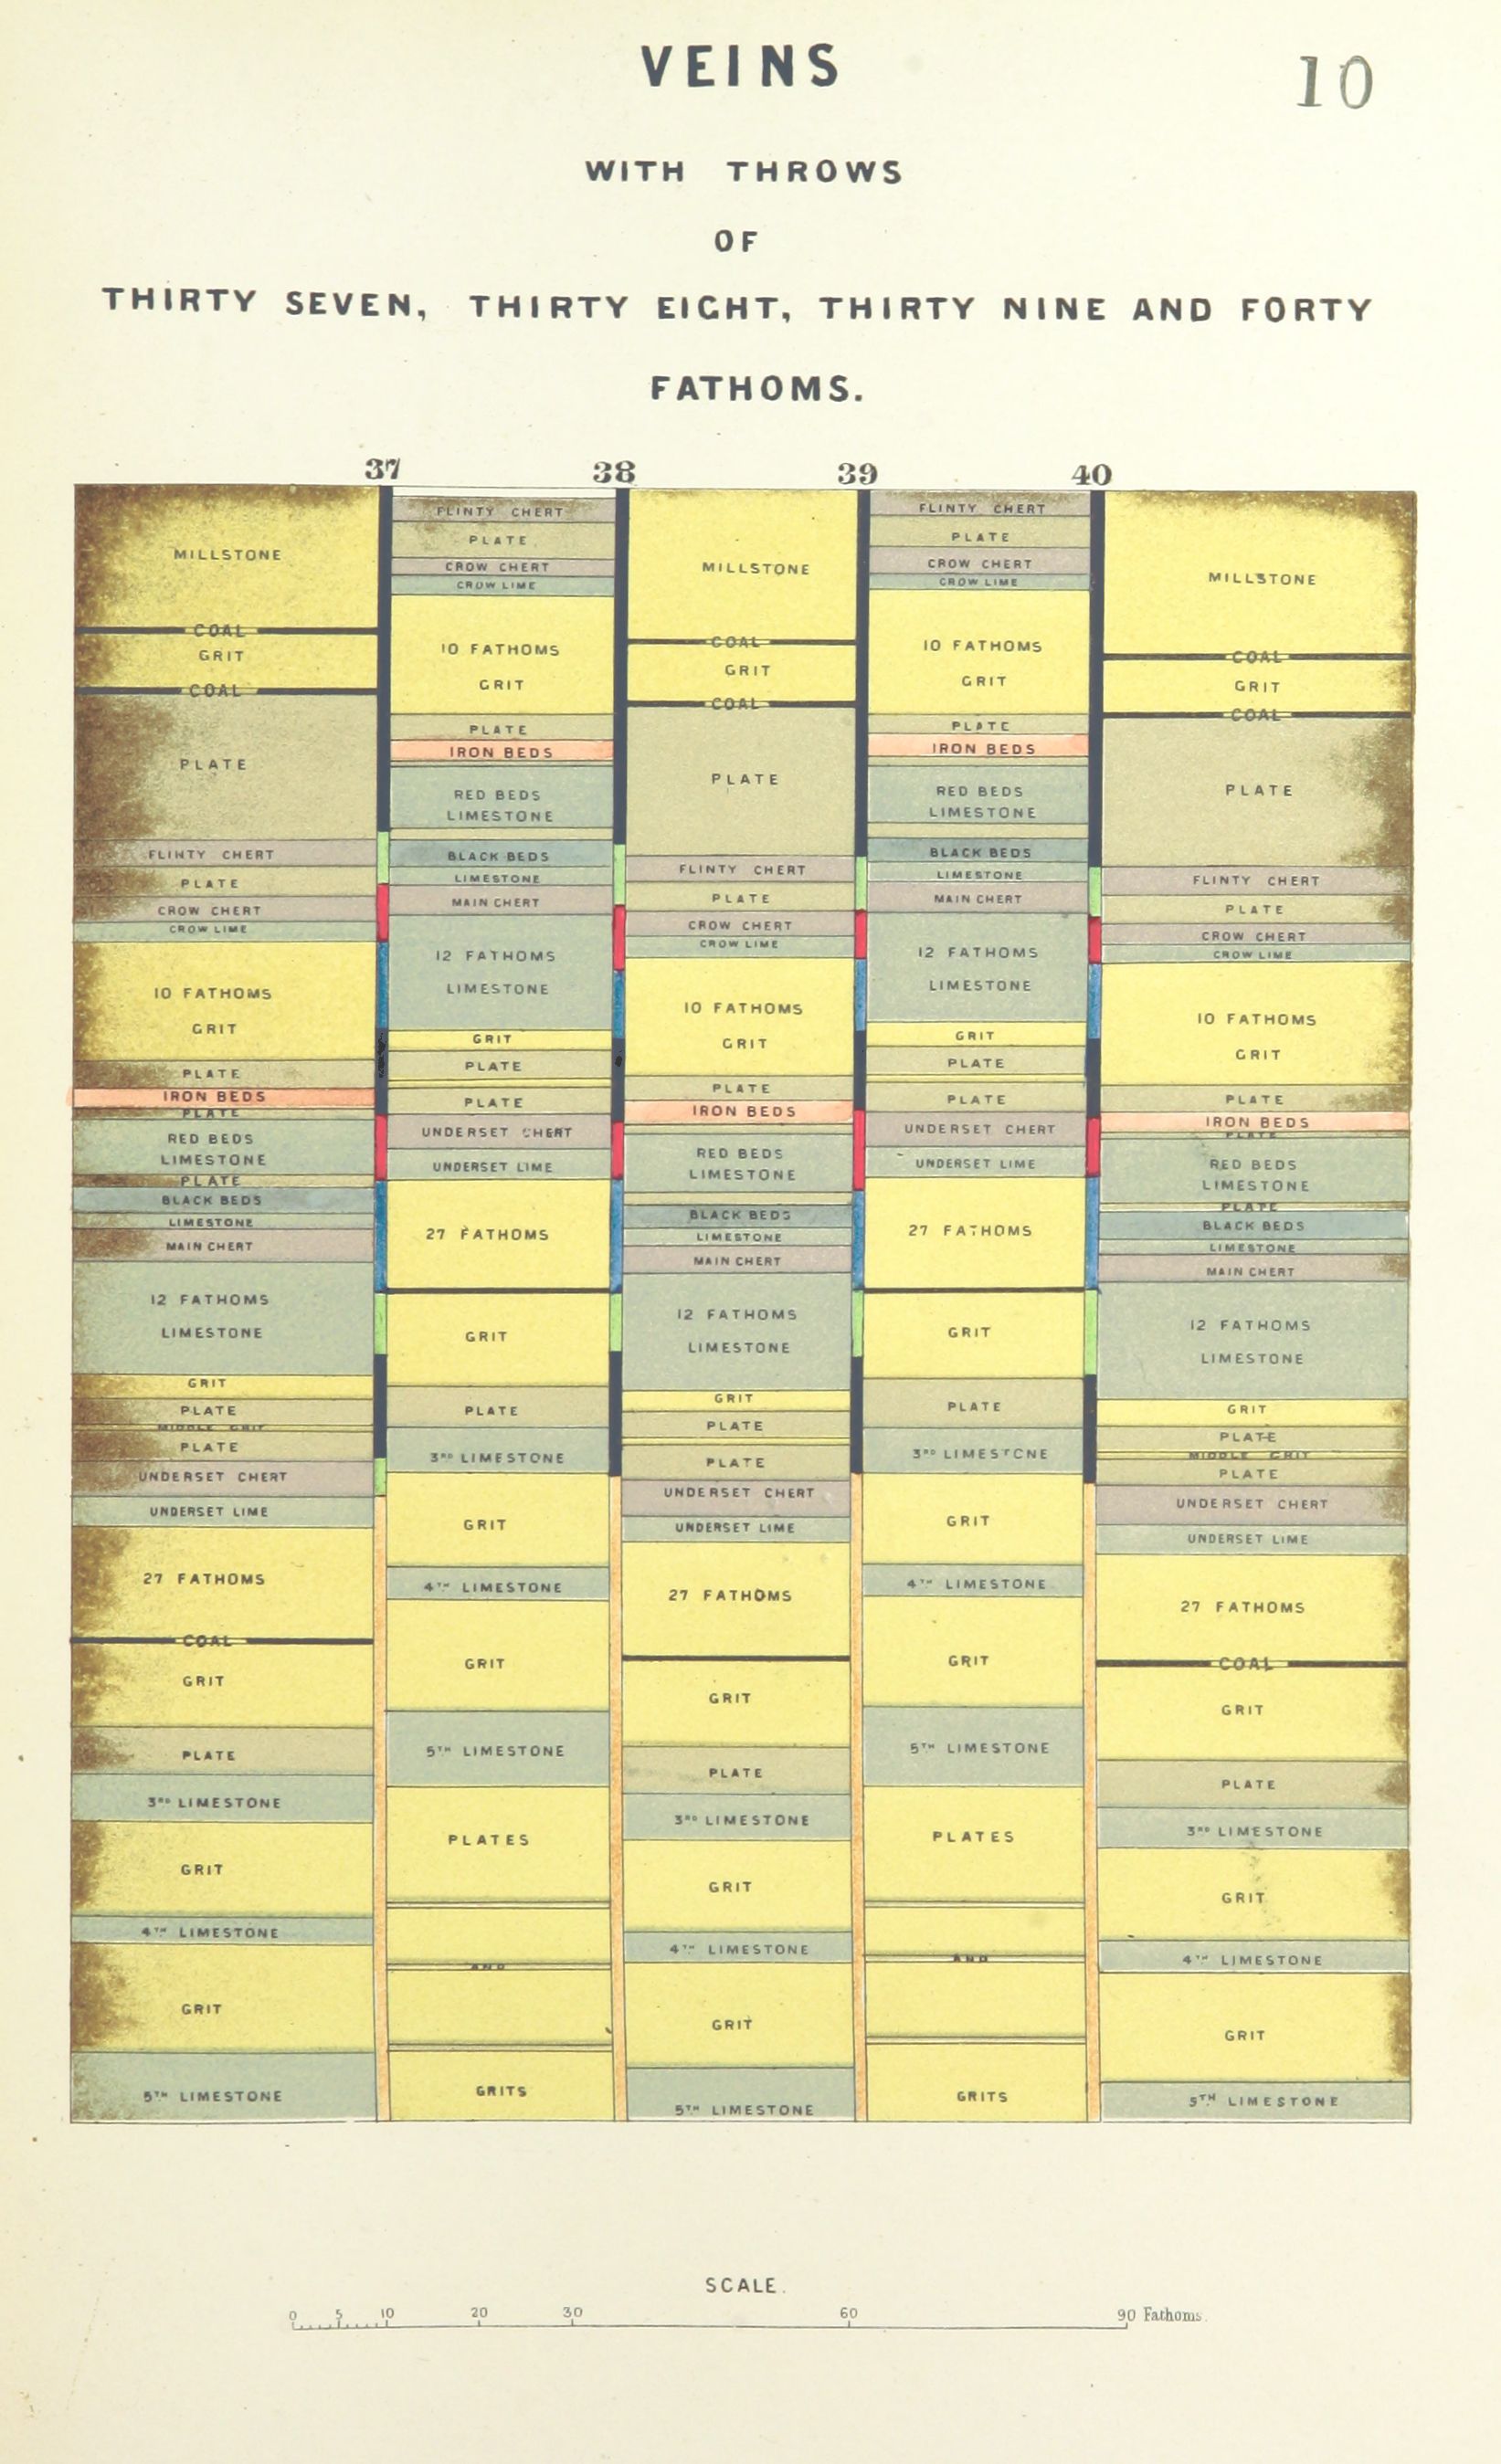 VEINS
10
WITH THROWS
OF
THIRTY SEVEN, THIRTY EIGHT, THIRTY NINE AND FORTY
FATHOMS.
37
38
39
40
MILLSTONE
COAL
GRIT
COAL
PLATE
FLINTY CHERT
PLATE
CROW CHERT
CROW LIME
10 FATHOMS
GRIT
PLATE
IRON BEDS
PLATE
RED BEDS
LIMESTONE
PLATE
BLACK BEDS
LIMESTONE
MAIN CHERT
12 FATHOMS
LIMESTONE
GRIT
PLATE
MIDDLE GRIT
PLATE
UNDERSET CHERT
UNDERSET LIME
27 FATHOMS
COAL
GRIT
PLATE
3RD LIMESTONE
GRIT
4TH LIMESTONE
GRIT
5TH LIMESTONE
FLINTY CHERT
PLATE
CROW CHERT
CROW LIME
10 FATHOMS
GRIT
PLATE
IRON BEDS
RED BEDS
LIMESTONE
BLACK BEDS
LIMESTONE
MAIN CHERT
12 FATHOMS
LIMESTONE
GRIT
PLATE
PLATE
UNDERSET CHERT
UNDERSET LIME
27 FATHOMS
GRIT
PLATE
3RD LIMESTONE
GRIT
4TH LIMESTONE
GRIT
5TH LIMESTONE
PLATES
AND
GRITS
MILLSTONE
COAL
GRIT
COAL
PLATE
FLINTY CHERT
PLATE
CROW CHERT
CROW LIME
10 FATHOMS
GRIT
PLATE
IRON BEDS
RED BEDS
LIMESTONE
BLACK BEDS
LIMESTONE
MAIN CHERT
12 FATHOMS
LIMESTONE
GRIT
PLATE
PLATE
UNDERSET CHERT
UNDERSET LIME
27 FATHOMS
GRIT
PLATE
3RD LIMESTONE
GRIT
4TH LIMESTONE
GRIT
5TH LIMESTONE
FLINTY CHERT
PLATE
CROW CHERT
CROW LIME
10 FATHOMS
GRIT
PLATE
IRON BEDS
RED BEDS
LIMESTONE
BLACK BEDS
LIMESTONE
MAIN CHERT
12 FATHOMS
LIMESTONE
GRIT
PLATE
PLATE
UNDERSET CHERT
UNDERSET LIME
27 FATHOMS
GRIT
PLATE
3RD LIMESTONE
GRIT
4TH LIMESTONE
GRIT
5TH LIMESTONE
PLATES
AND
GRITS
MILLSTONE
COAL
GRIT
COAL
PLATE
FLINTY CHERT
PLATE
CROW CHERT
CROW LIME
10 FATHOMS
GRIT
PLATE
IRON BEDS
PLATE
RED BEDS
LIMESTONE
PLATE
BLACK BEDS
LIMESTONE
MAIN CHERT
12 FATHOMS
LIMESTONE
GRIT
PLATE
MIDDLE GRIT
PLATE
UNDERSET CHERT
UNDERSET LIME
27 FATHOMS
COAL
GRIT
PLATE
3RD LIMESTONE
GRIT
4TH LIMESTONE
GRIT
5TH LIMESTONE
SCALE.
0 5 10 20 30 60 90 Fathoms.